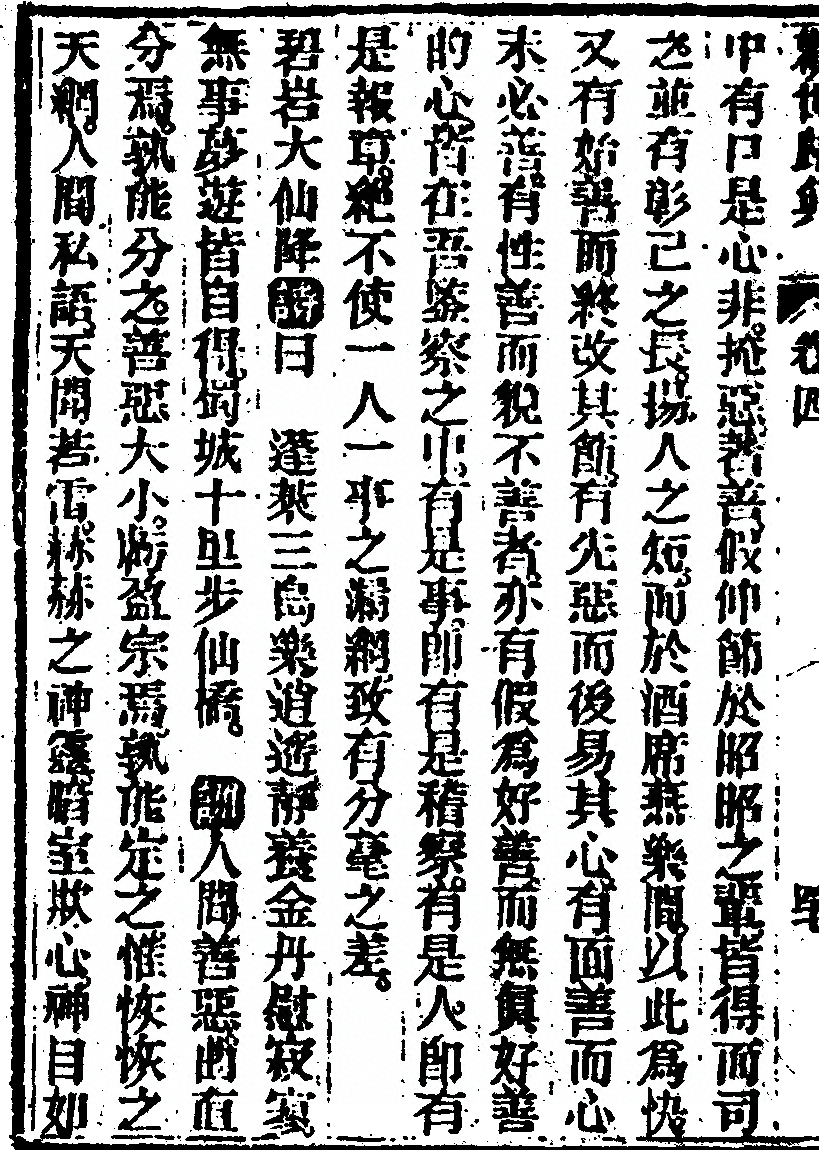 卷四
中有口是心非掩惡著善假仲節於昭昭之輩皆得而司
之並有彰己之長揚人之短而於酒席燕樂間以此為快
又有始善而終改其節有先惡而後易其心有面善而心
未必善有性善而貌不善者亦有假為好善而無真好善
的心皆在吾鑒察之中有是事即有是稽察有是人即有
是報章絕不使一人一事之漏網致有分毫之差
碧岩大仙降詩曰 蓬萊三島樂逍遙靜養金丹慰寂寞
無事夢遊皆自得蜀城十里步仙橋 詞人間善惡出有
分焉孰能分之善惡大小虧盈宗焉孰能定之惟恢恢之
天網人間私語天聞若雷赫赫之神靈暗室欺心神目如